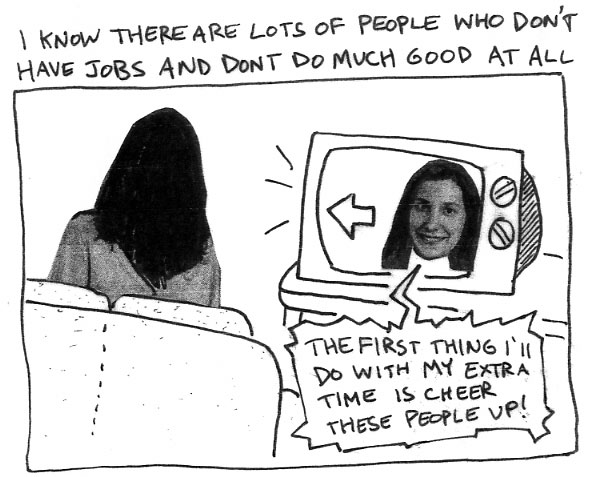 I KNOW THERE ARE LOTS OF PEOPLE WHO DON'T
HAVE JOBS AND DONT DO MUCH GOOD AT ALL
THE FIRST THING I'll
DO WITH MY EXTRA
TIME IS CHEER
THESE PEOPLE UP!